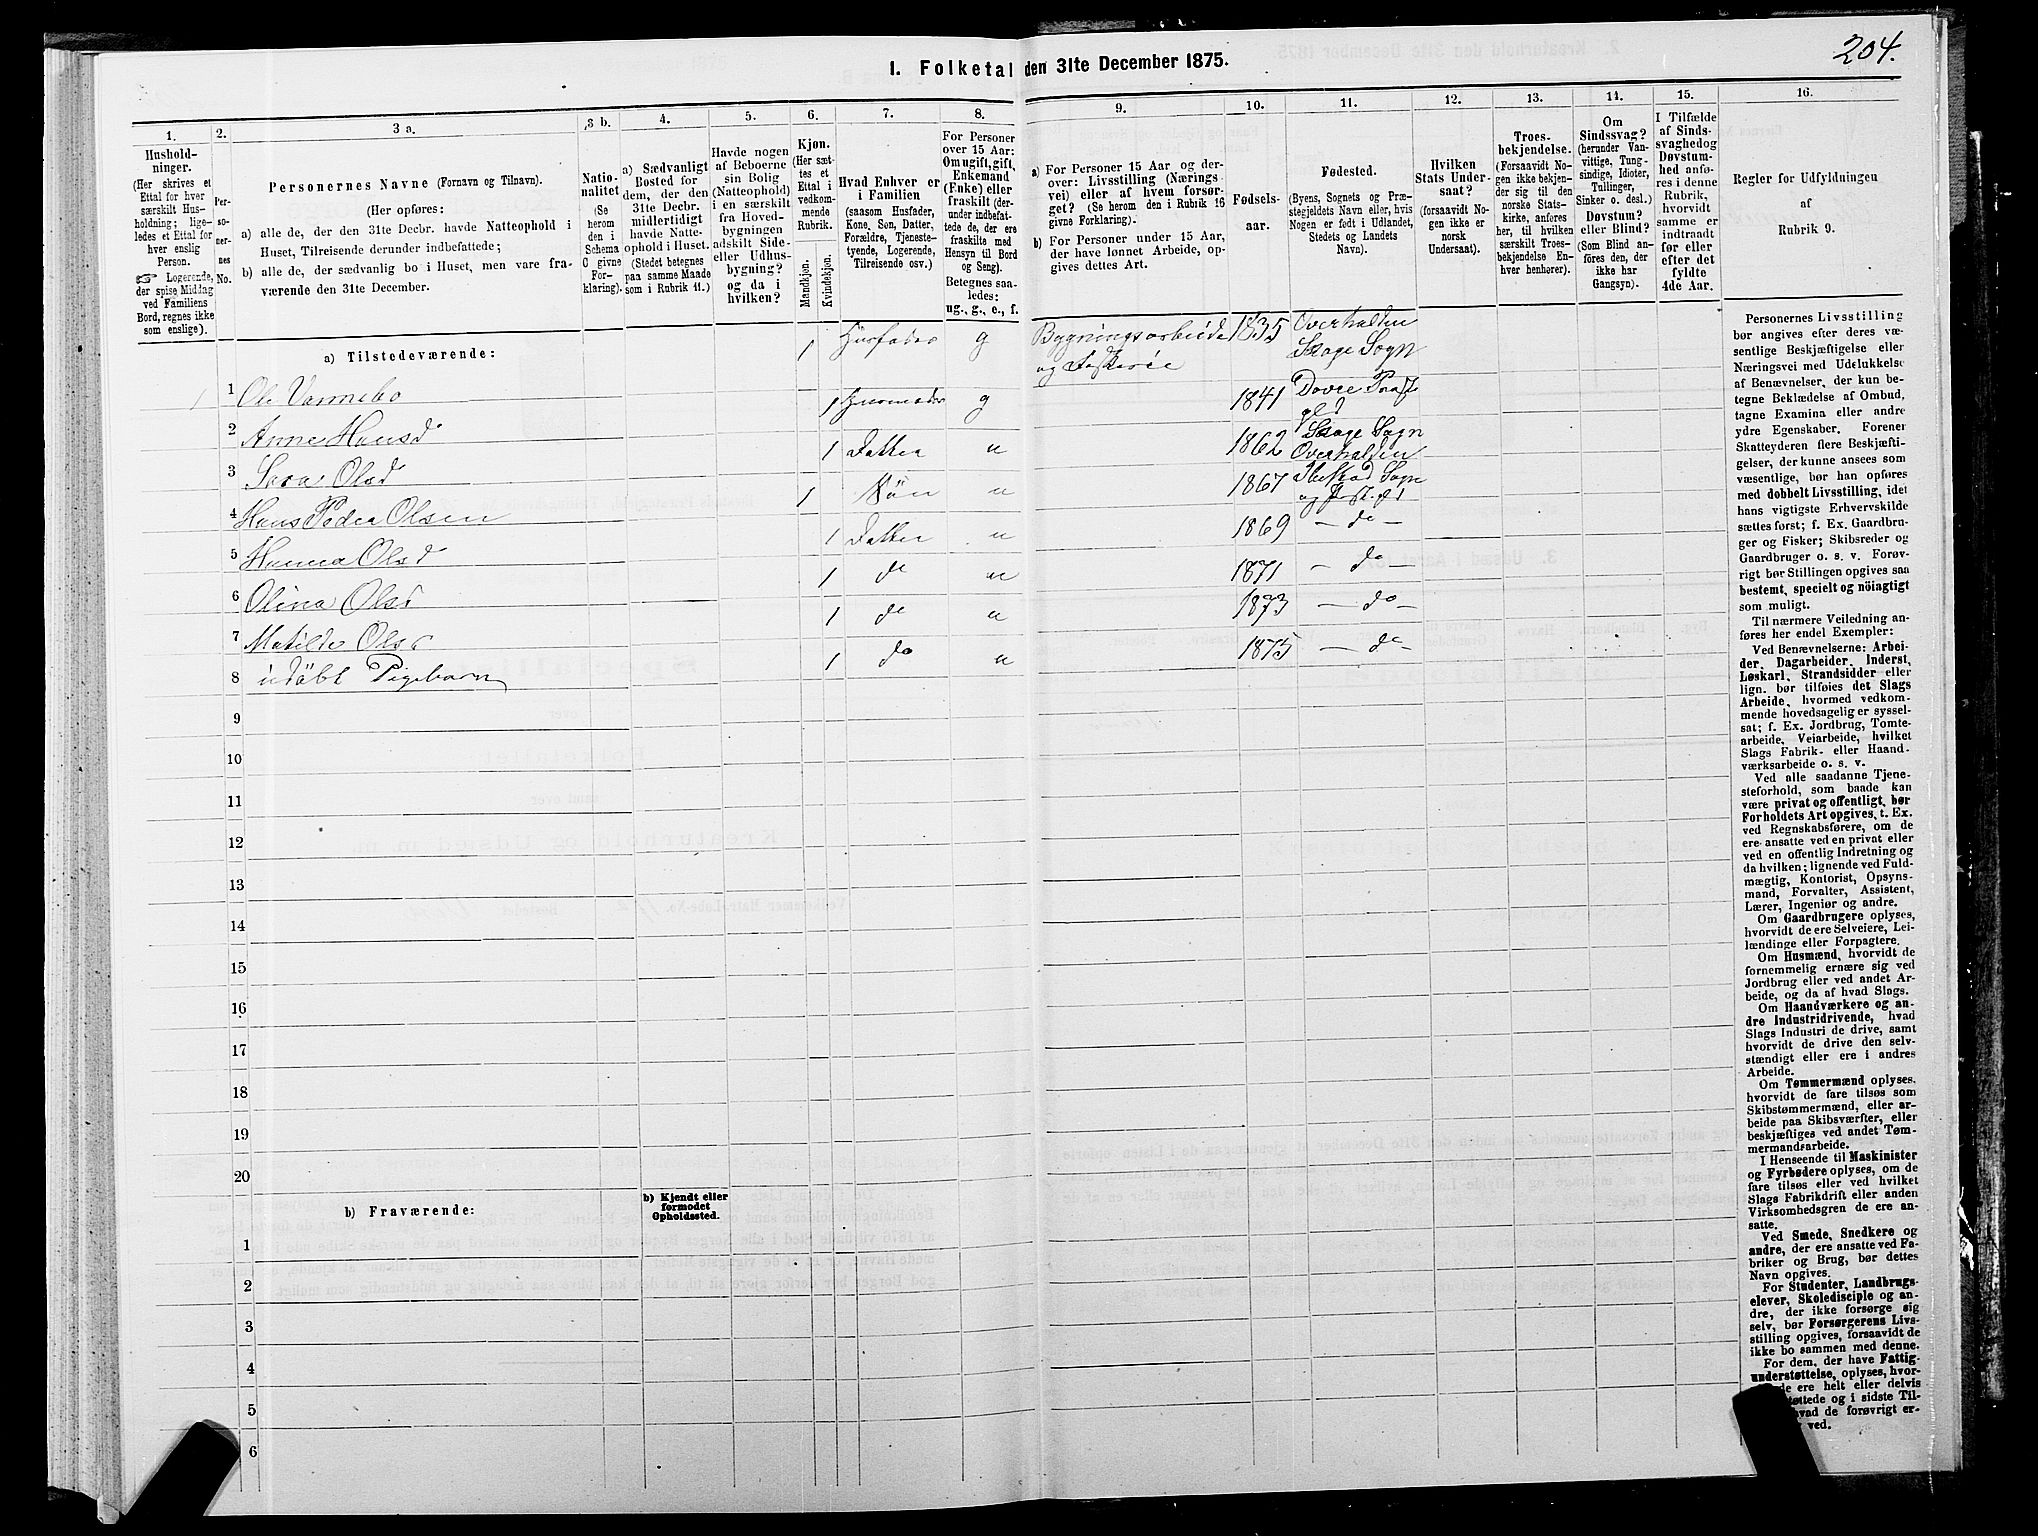 204.
1. Folketal den 31te December 1875.
1.
Hushold-
ninger.
(Her skrives et
Ettal for hver
særskilt Hus-
holdning; lige-
ledes et Ettal for
hver enslig
Person.
Logerende,
der spise Middag
ved Familiens
Bord, regnes ikke
som enslige).
2.
Per-
so-
ner-
nes
No.
3 a.
Personernes Navne (Fornavn og Tilnavn).
(Her opføres:
a) alle de, der den 31te Decbr. havde Natteophold i
Huset, Tilreisende derunder indbefattede;
b) alle de, der sædvanlig bo i Huset, men vare fra-
værende den 31te December.
3 b.
Natio-
nalitet
(Se
herom
den i
Schema
O givne
For-
klaring).
4.
a) Sædvanligt
Bosted for
dem, der den
31te Decbr.
midlertidigt
havde Natte-
ophold i Huset.
(Stedet betegnes
paa samme Maade
som i Rubrik 11.)
5.
Havde nogen
af Beboerne
sin Bolig
(Natteophold)
i en særskilt
fra Hoved-
bygningen
adskilt Side-
eller Udhus-
bygning?
og da i
hvilken?
6.
Kjøn.
(Her sæt-
tes et
Ettal i
vedkom-
mende
Rubrik.
Mandkjøn.
Kvindekjøn.
7.
Hvad Enhver er
i Familien
(saasom Husfader,
Kone, Søn, Datter,
Forældre, Tjeneste-
tyende, Logerende,
Tilreisende osv.)
8.
For Personer
over 15 Aar:
Om ugift, gift,
Enkemand
(Enke) eller
fraskilt (der-
under indbefat-
tede de, der ere
fraskilte med
Hensyn til Bord
og Seng).
Betegnes saa-
ledes:
ug., g., e., f.
9.
a) For Personer 15 Aar og der-
over: Livsstilling (Nærings-
vei) eller af hvem forsør-
get? (Se herom den i Rubrik 16
givne Forklaring).
b) For Personer under 15 Aar,
der have lønnet Arbeide, op-
gives dettes Art.
10.
Fødsels-
aar.
11.
Fødested.
(Byens, Sognets og Præ-
stegjeldets Navn eller, hvis
Nogen er født i Udlandet,
Stedets og Landets
Navn).
12.
Hvilken
Stats Under-
saat?
(forsaavidt No-
gen ikke er
norsk
Undersaat).
13.
Troes-
bekjendelse.
(Forsaavidt No-
gen ikke bekjen-
der sig til den
norske Stats-
kirke, anføres
her, til hvilken
særskilt Troes-
bekjendelse En-
hver henhører).
14.
Om
Sindssvag?
(herunder Van-
vittige, Tung-
sindige, Idioter,
Tullinger,
Sinker o. desl.)
Døvstum?
eller Blind?
(Som Blind an-
føres den, der
ikke har
Gangsyn).
15.
I Tilfælde
af Sinds-
svaghed og
Døvstum-
hed anfø-
res i denne
Rubrik,
hvorvidt
samme er
indtraadt
før eller
efter det
fyldte
4de Aar.
16.
Regler for Udfyldningen
af
Rubrik 9.
a) Tilstedeværende:
1 1 Ole Vannebo 1 Husfader g Bygningsarbeide og Fiskerie 1835 Overhalden Skage Sogn
2 Anne Hansd 1 Husmoder g 1841 Dovre Præstgld
3 Sara Olsd 1 Datter u 1862 Skage Sogn Overhalden
4 Hans Peder Olsen 1 Søn u 1867 Sogn og
5 Hanna Olsd 1 Datter u 1869 – do –
6 Olina Olsd 1 do u 1871 – do –
7 Matilde Olsd 1 do u 1873 – do –
8 udøbt Pigebarn 1 do u 1875 – do –
9
10
11
12
13
14
15
16
17
18
19
20
b) Fraværende:
b) Kjendt eller
formodet
Opholdssted.
1
2
3
4
5
6
Personernes Livsstilling
bør angives efter deres væ-
sentlige Beskjæftigelse eller
Næringsvei med Udelukkelse
af Benævnelser, der kun be-
tegne Beklædelse af Ombud,
tagne Examina eller andre
ydre Egenskaber. Forener
Skatteyderen flere Beskjæfti-
gelser, der kunne ansees som
væsentlige, bør han opføres
med dobbelt Livsstilling, idet
hans vigtigste Erhvervskilde
sættes forst; f. Ex. Gaardbru-
ger og Fisker; Skibsreder og
Gaardbruger o. s. v. Forøv-
rigt bør Stillingen opgives saa
bestemt, specielt og nöiagtigt
som muligt.
Til nærmere Veiledning an-
føres her endel Exempler:
Ved Benævnelserne: Arbei-
der, Dagarbeider, Inderst,
Løskarl, Strandsidder eller
lign. bør tilføies det Slags
Arbeide, hvormed vedkom-
mende hovedsagelig er syssel-
sat; f. Ex. Jordbrug, Tomte-
arbeide, Veiarbeide, hvilket
Slags Fabrik- eller Haand-
værksarbeide o. s. v.
Ved alle saadanne Tjene-
steforhold, som baade kan
være privat og offentligt, bør
Forholdets Art opgives, t. Ex.
ved Regnskabsførere, om de
ere ansatte ved en privat eller
ved en offentlig Indretning og
da hvilken; lignende ved Fuld-
mægtig, Kontorist, Opsyns-
mand, Forvalter, Assistent,
Lærer, Ingeniør og andre.
Om Gaardbrugere oplyses,
hvorvidt de ere Selveiere, Lei-
lændinge eller Forpagtere.
Om Husmænd, hvorvidt de
fornemmelig ernære sig ved
Jordbrug eller ved andet Ar-
beide, og da af hvad Slags.
Om Haandværkere og an-
dre Industridrivende, hvad
Slags Industri de drive, samt
hvorvidt de drive den selv-
stændigt eller ere i andres
Arbeide.
Om Tømmermænd oplyses,
hvorvidt de fare tilsøs som
Skibstømmermænd, eller ar-
beide paa Skibsværfter, eller
beskjæftiges ved andet Tøm-
mermandsarbeide.
I Henseende til Maskinister
og Fyrbødere oplyses, om de
fare tilsøs eller ved hvilket
Slags Fabrikdrift eller anden
Virksomhedsgren de ere an-
satte.
Ved Smede, Snedkere og
andre, der ere ansatte ved Fa-
briker og Brug, bør dettes
Navn opgives.
For Studenter, Landbrugs-
elever, Skoledisciple og an-
dre, der ikke forsørge sig
selv, bør Forsørgerens Livs-
stilling opgives, forsaavidt de
ikke bo sammen med denne.
For dem, der have Fattig-
understøttelse, oplyses, hvor-
de ere helt eller delvis
tøttede og i sidste Til-
hvad de forøvrigt er-
ved.